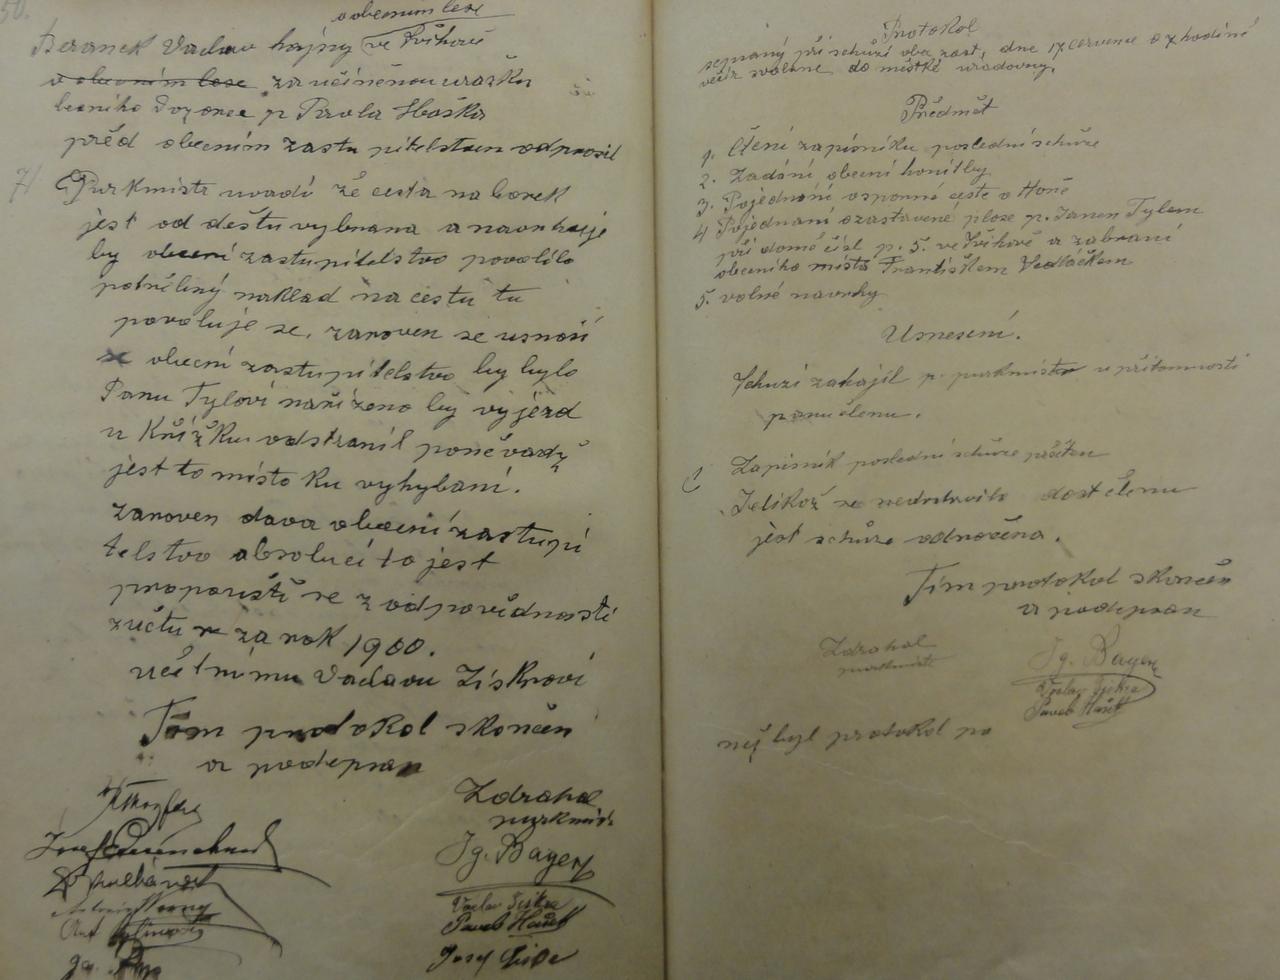 50.
v obecním lese
Beranek Vaclav hajny ve Svihově
v obecním lese za učiněnou urašku
lesniho p Pavla Haška
přěd obecnim zastupitelstvem odprosil
7/ Purkmistr uvadí že cesta na borek
jest od deštu vybrana a navrhuje
by obecni zastupitelstvo povolilo
potrěbný naklad na cestu tu
povoluje se, zaroven se usnaší
se obecní zastupitelstvo by bylo
Panu Tylovi nařízeno by vyjezd
u Křížku odstranil poněvadž
jest to misto ku vyhybaní.
zaroven dava obecní zastupi
telstvo absoluci to jest
propouští se z odpovědnosti
zučtu za rok 1900.
učetnimu Vaclavu Ziskovi
Tim protokol skončen
a podepsan
Zdrahal
purkmistr
Josef
Jg. Bayer
Vaclav Šiška
Pavel Hašek
Josef
Protokol
sepsaný při schůzi obec. zast, dne 17 července o 7 hodině
večír svolané do místné uradovny.
Předmět
1. Čteni zapisniku poslední schůze
2. Zadáni obecni honitby
3. Pojednání o sponní cestě v Honě
4 Pojednani o zastavené ploše p. Janem Tylem
při domě čísl p. 5. ve Svihově a zabraní
obecniho místa Františkem Vedláčkem
5. volné navrhy
Usnesení.
Schuzi zahajil p. purkmistr u přitomnosti
panu členu.
1 Zapisnik poslední schůze přečten
Jelikož se nedostavilo dost členu
jest schůze odročena.
Tim protokol skončen
a podepsan
Zdrahal
purkmistr
Jg. Bayer
Vaclav Šiška
Pavel Hašek
než byl protokol po